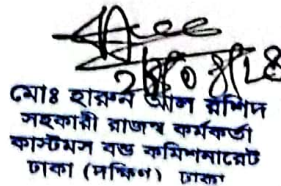 মোঃ হারুন অল রশিদ
সহকারী রাজস্ব কর্মকর্তা
কাস্টমস বন্ড কমিশনারেট
ঢাকা (দক্ষিণ) ঢাকা